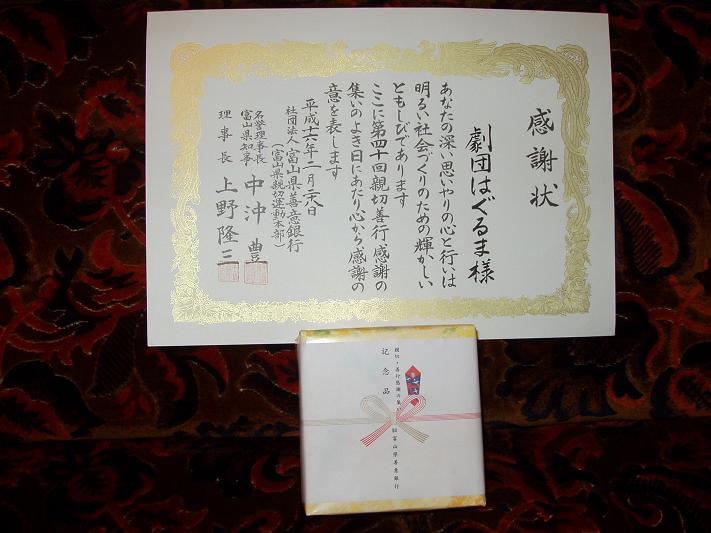 感謝状
劇団はぐるま様
あなたの深い思いやりの心と行いは
明るい社会づくりのための輝かしい
ともしびであります
ここに第四十回親切善行感謝の
集いのよき日にあたり心から感謝の
意を表します
平成十六年二月二八日
社団法人富山県善意銀行
（富山県親切運動本部）
名誉理事長
富山県知事
中沖豊
理事長 上野隆三
親切・善行感謝の集い
記念品
富山県善意銀行